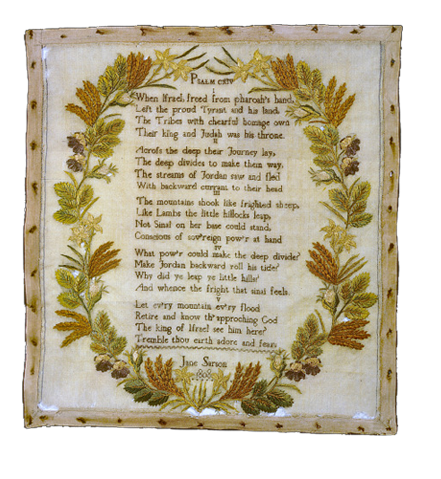 PSALM CXIV
I
When Ifrael, freed from pharoah's hand,
Left the proud Tyrant and his land,
The Tribes with chearful homage own
Their king and Judah was his throne.
II
Acrofs the deep their Journey lay,
The deep divides to make them way,
The streams of Jordan saw and fled
With backward currant to their head
III
The mountains shook like frighted sheep,
Like Lambs the little hillocks leap,
Not Sinai on her base could stand,
Conscious of sov'reign pow'r at hand
IV
What pow'r could make the deep divide?
Make Jordan backward roll his tide?
Why did ye leap ye little hills?
And whence the fright that sinai feels.
V
Let ev'ry mountain ev'ry flood
Retire and know th' approching God
The king of Ifrael see him here?
Tremble thou earth adore and fear.
Jane Sarson
1808